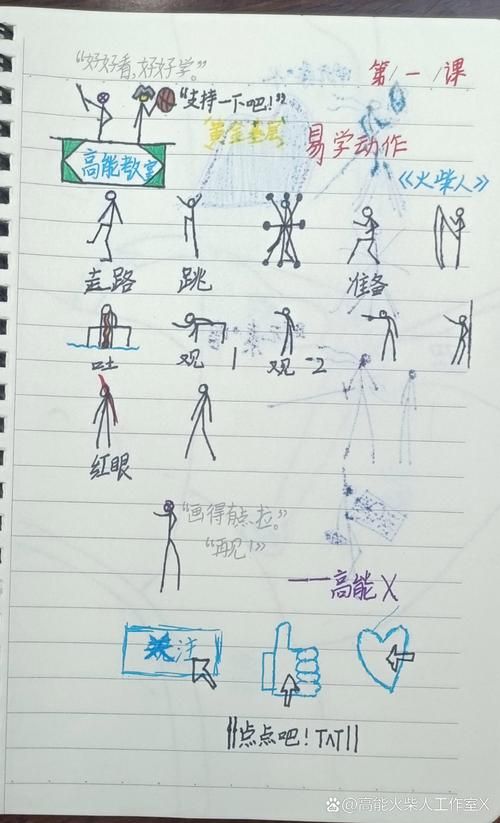 “好好看,好好学。”
第一课
“支持一下吧!”
黄金基层
易学动作
高能教室
《火柴人》
走路 跳 准备
吐 观1 观-2
红眼
“画得有点拉。”
“再见!”
——高能X
关注
点点吧!TAT
@高能火柴人工作室X